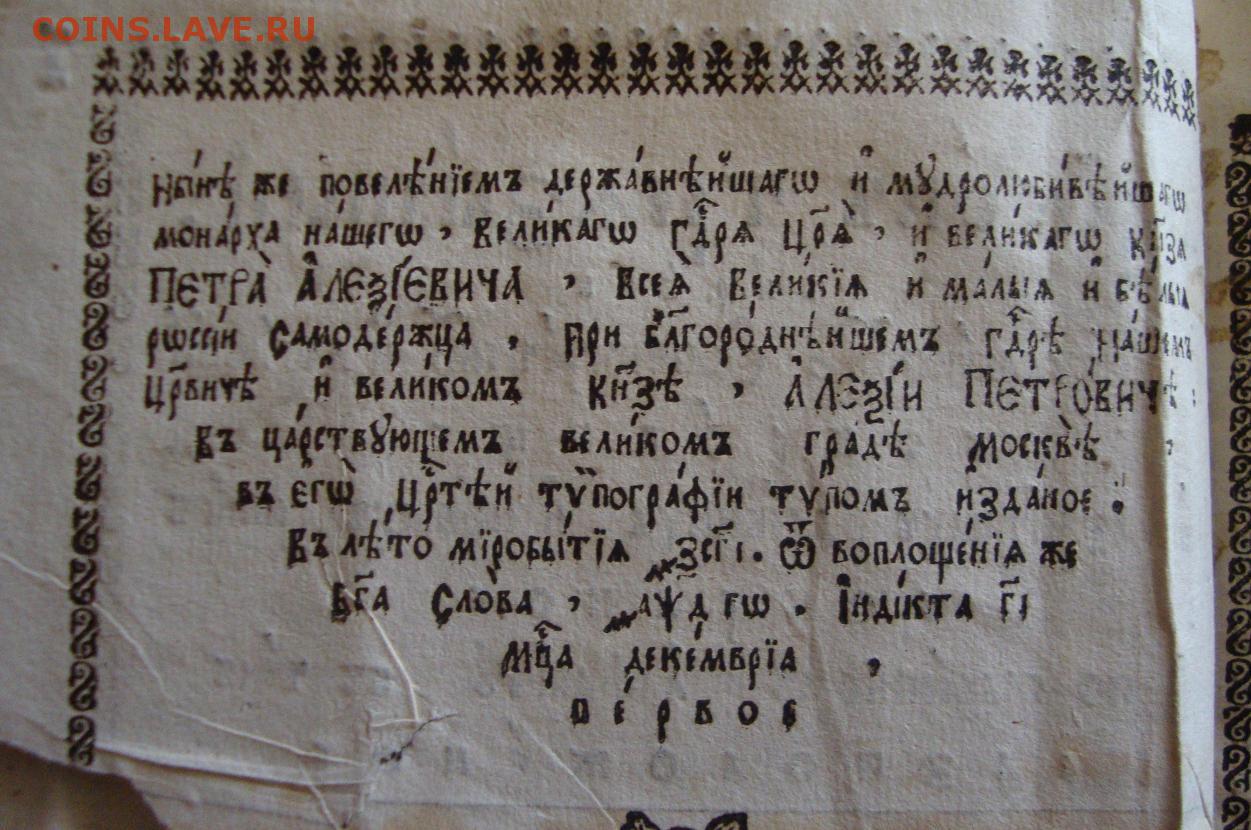 COINS.LAVE.RU
Нн҃ѣ же повелѣ́нїемъ держа́внѣйшагѡ и҆ мꙋдролюби́вѣйшагѡ
мона́рха на́шегѡ, вели́кагѡ гдⷭ҇рѧ цр҃ѧ̀, и҆ вели́кагѡ кн҃зѧ
ПЕТРА̀ А҆ЛЕѮІ́ЕВИЧА, всеѧ̀ вели́кїѧ и҆ ма́лыѧ и҆ бѣ́лыѧ
рѡссі́и самоде́ржца, при бл҃горо́днѣйшемъ гдⷭ҇рѣ на́шемъ
цр҃вичѣ и҆ вели́комъ кн҃зѣ, А҆ЛЕѮІ́И ПЕТРО́ВИЧѢ:
въ ца́рствꙋющемъ вели́комъ гра́дѣ москвѣ̀,
въ є҆гѡ̀ црⷭ҇тѣй тѷпогра́фїи тѷ́помъ и҆зда́ное:
Въ лѣ́то мїробытїѧ ҂зсг҃і. Ѿ воплоще́нїѧ же
Бг҃а Сло́ва, ҂аѱ҃д гѡ. І҆нді́кта г҃і
Мцⷭ҇а деке́мврїа,
пе́рвое